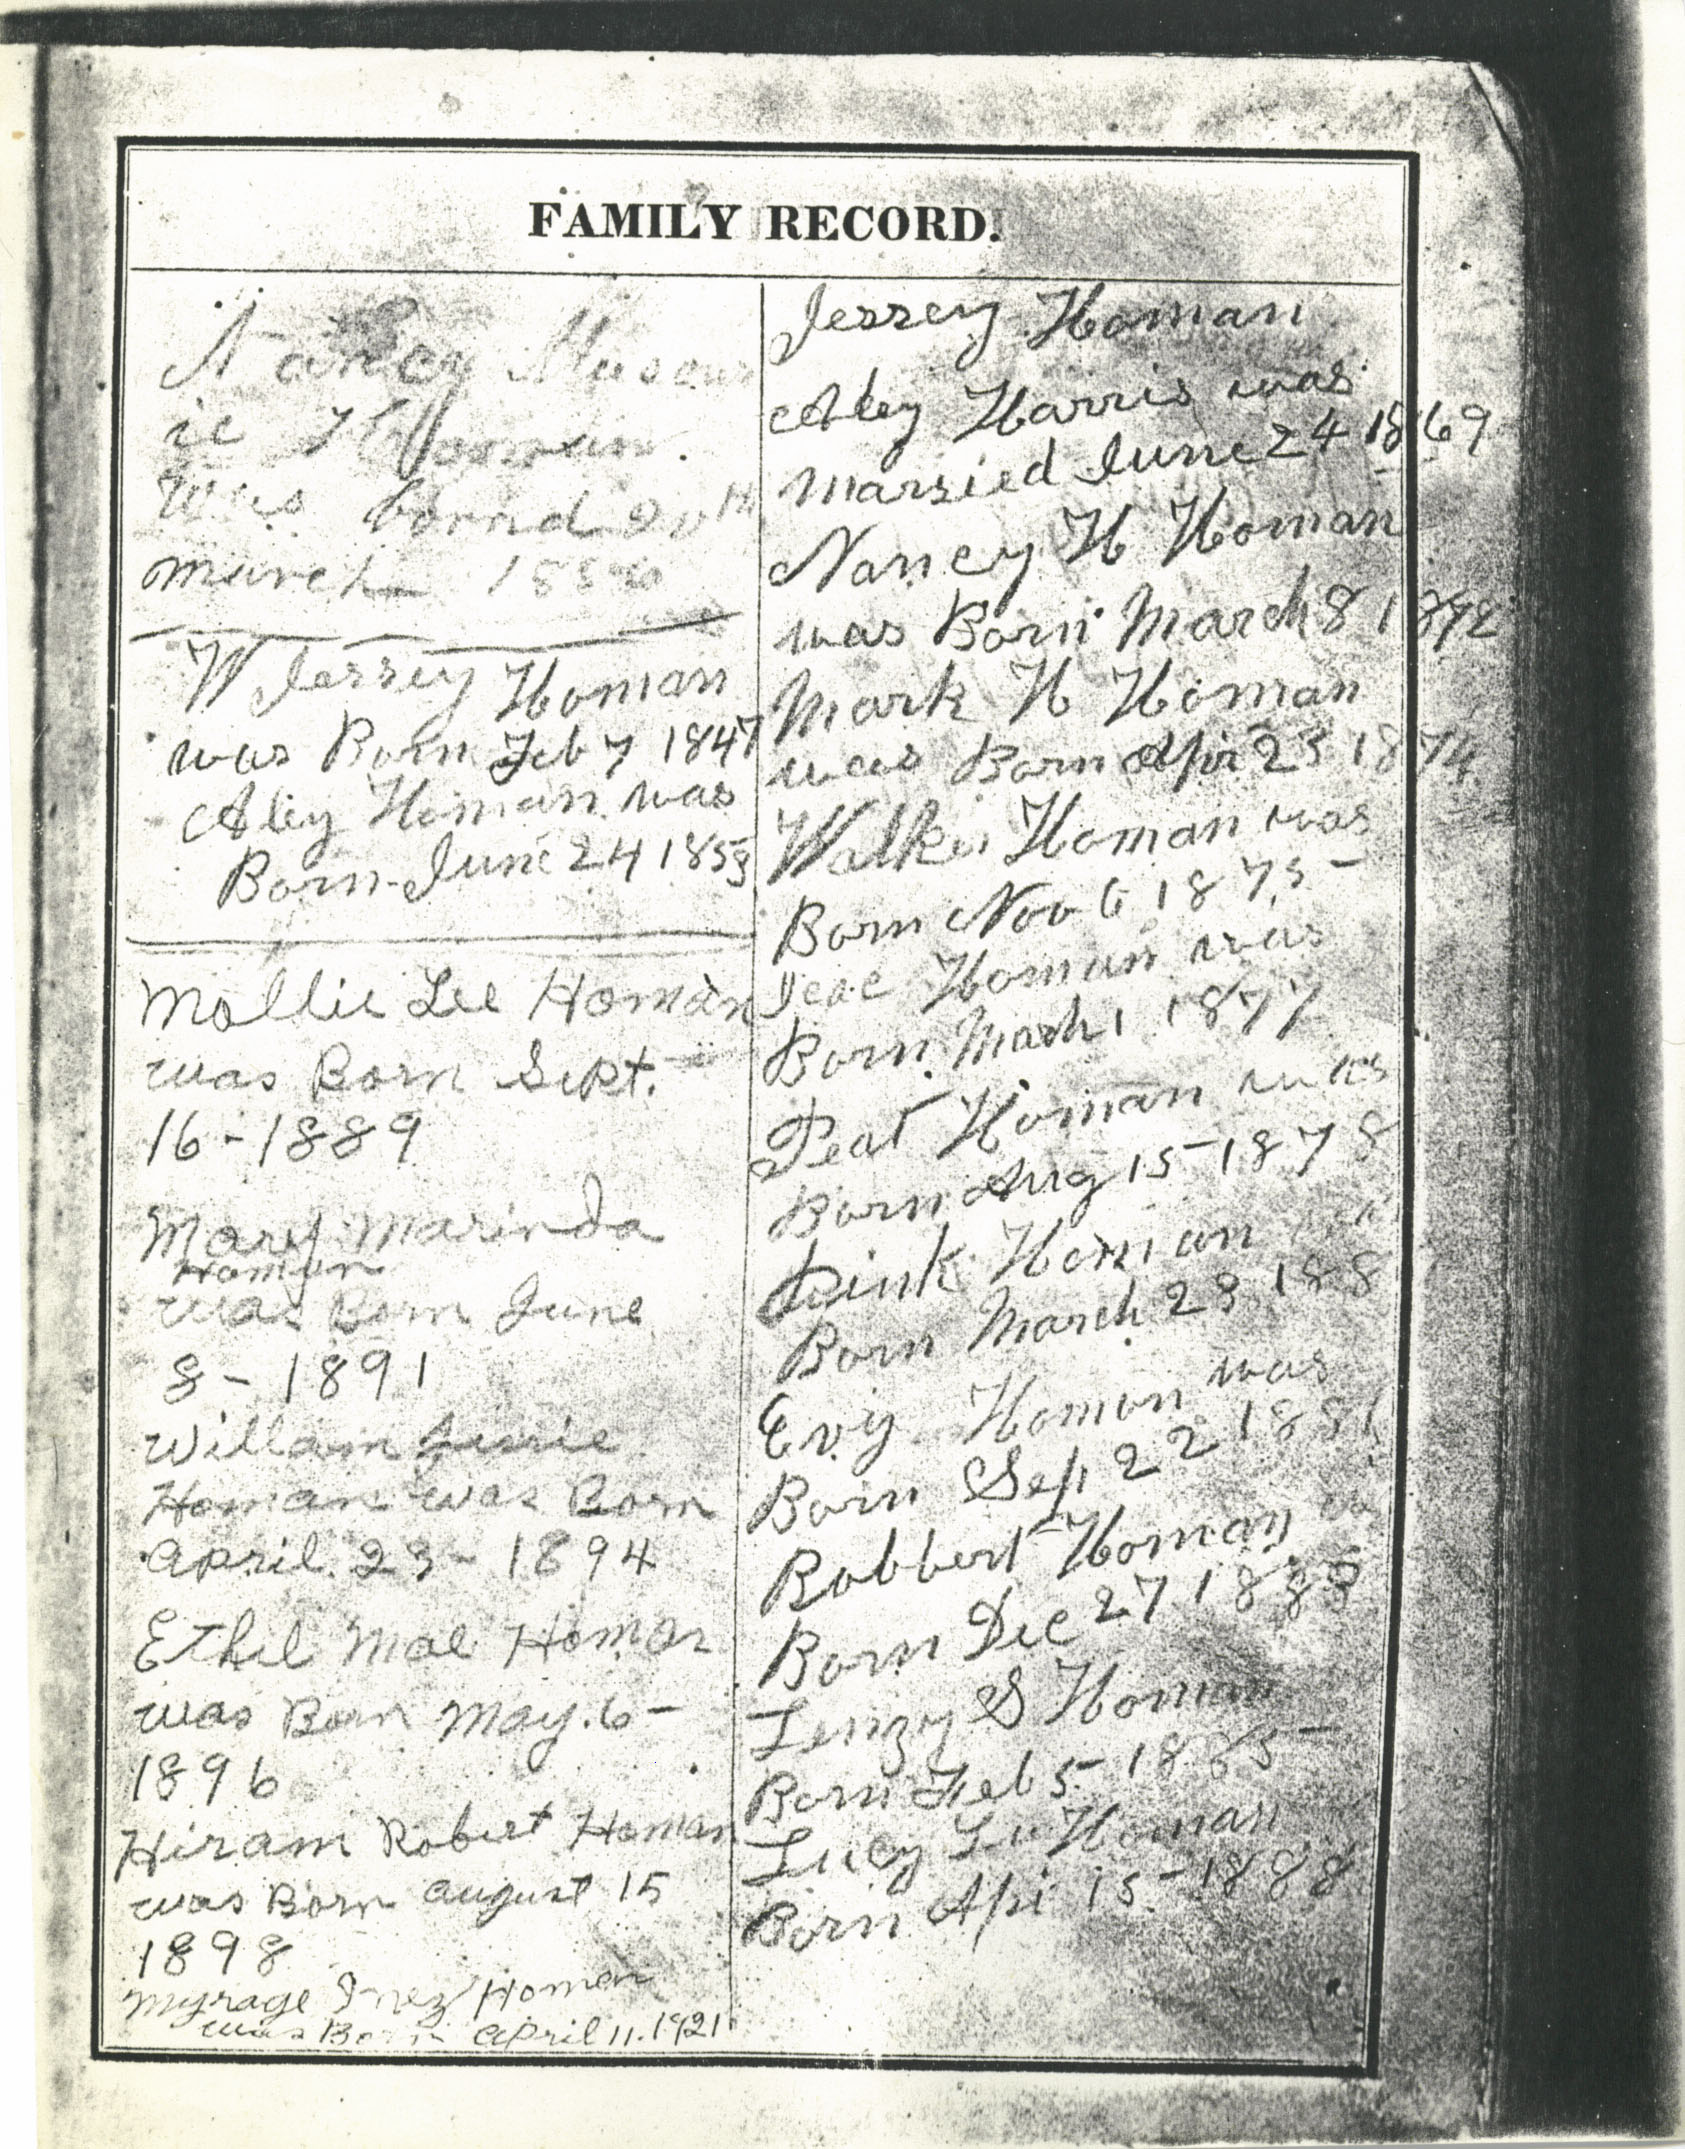 FAMILY RECORD.
Nancy
Homan
Was bornd
March
W Jerrey Homan
was Born Feb 7 1847
Aley Homan was
Born June 24 1853
Mollie Lee Homan
was Born Sept.
16-1889
Mary Marinda
Homan
was Born June
8-1891
Willam Jessie
Homan was Born
April 23-1894
Ethel Mae Homan
was Born May.6-
1896
Hiram Robert Homan
was Born August 15
1898
Myrage Inez Homan
was Born April 11.1921
Jerrey Homan
Aley Harris was
Marsied June 24 1869
Nancy H Homan
was Born March 8 1872
Mark H Homan
was Born Apr 23 1874
Walker Homan was
Born Nov 6 1875-
Homan was
Born March 1 1877
Peat Homan was
Born Aug 15-1878
Homan was
Born March 23 188
Evy Homan was
Born Sep 22 1881
Robbert Homan
Born Dec 27 1883
Linzy S Homan
Born Feb 5-1885-
Lucy Lee Homan
Born Apr 15-1888